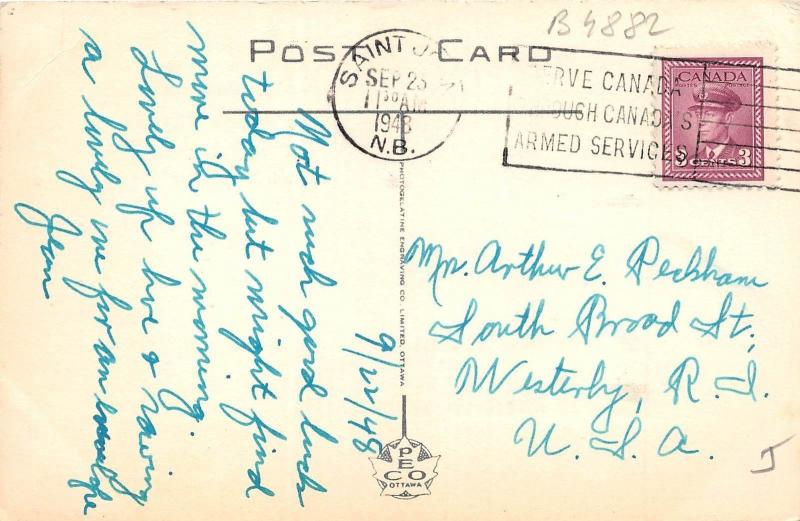 B4882
POST CARD
SAINT JOHN
SEP 23
11 30 AM
1948
N.B.
SERVE CANADA
THROUGH CANADA'S
ARMED SERVICES
CANADA
POSTES POSTAGE
3 CENTS 3
9/22/48
Not much good luck
today but might find
more in the morning.
Lovely up here & having
a lovely time for an
Jean
Mr. Arthur E. Peckham
South Broad St,
Westerly, R.I.
U.S.A.
PHOTOGELATINE ENGRAVING CO. LIMITED, OTTAWA
PECO
OTTAWA
J